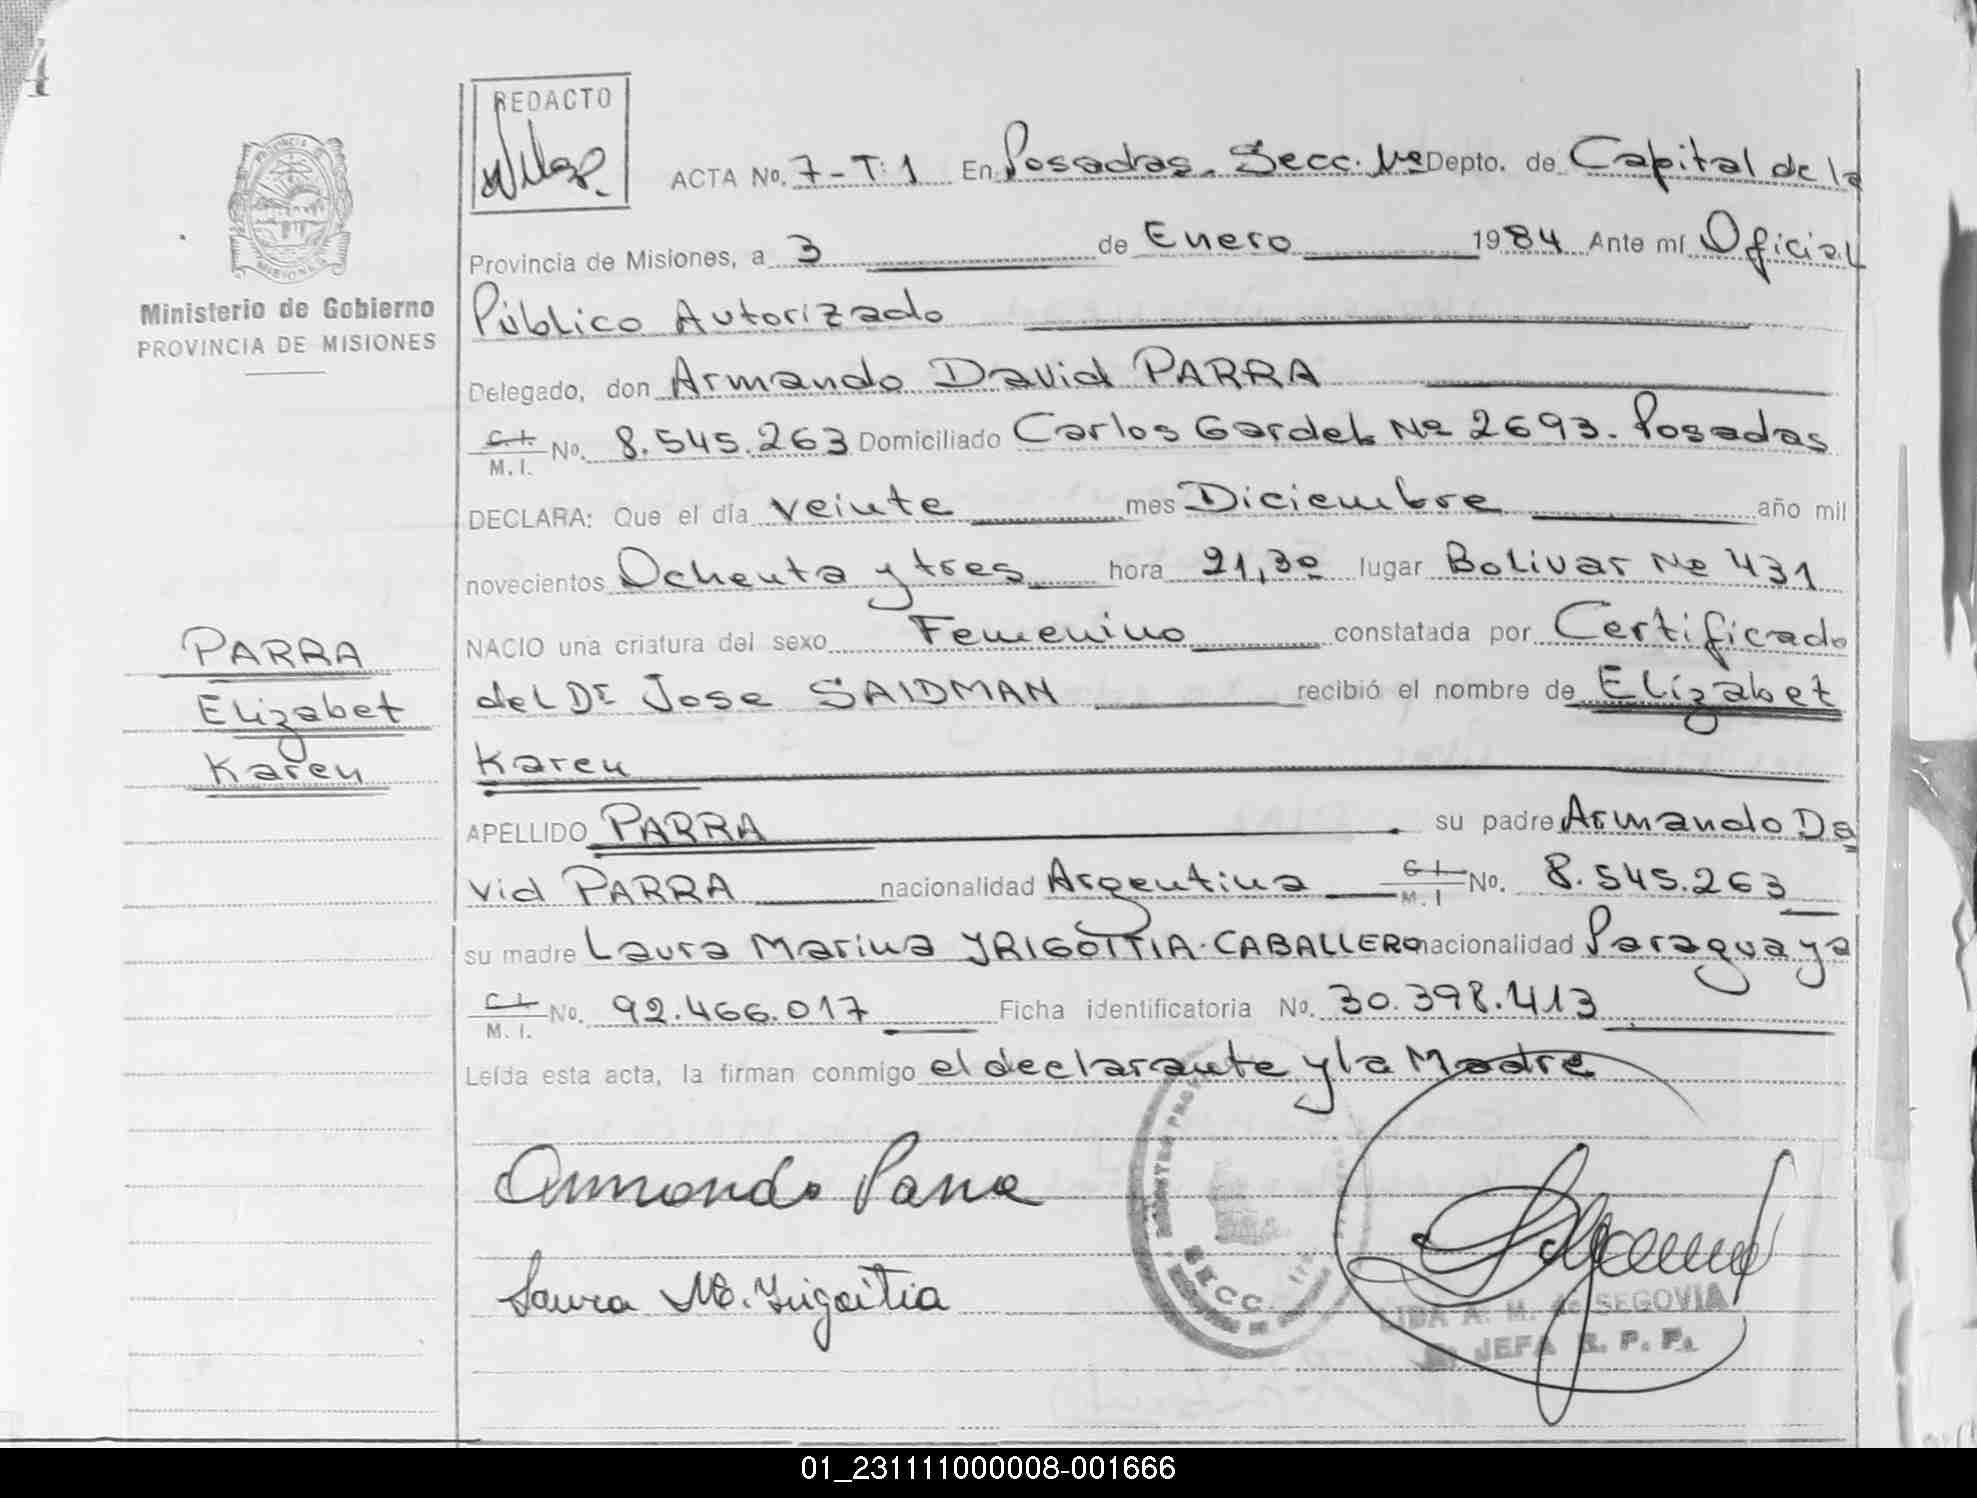 REDACTO
ACTA No. 7-T: 1 En Posadas, Secc. 1ª Depto. de Capital de la
Provincia de Misiones, a 3 de Enero 1984 Ante mí Oficial
Público Autorizado
Delegado, don Armando David PARRA
C.I. M.I. No. 8.545.263 Domiciliado Carlos Gardel Nº 2693. Posadas
DECLARA: Que el día veinte mes Diciembre año mil
novecientos Ochenta y tres hora 21,30 lugar Bolivar Nº 431
NACIO una criatura del sexo Femenino constatada por Certificado
del Dr Jose SAIDMAN recibió el nombre de Elizabet
Karen
APELLIDO PARRA su padre Armando Da
vid PARRA nacionalidad Argentina C.I. M.I No. 8.545.263
su madre Laura Marina YRIGOITIA-CABALLERO nacionalidad Paraguaya
C.I. M.I. No. 92.466.017 Ficha identificatoria No. 30.398.413
Leída esta acta, la firman conmigo el declarante y la Madre
Armando Parra
Laura M. Yrigoitia
SECC.
LIDA A. M. de SEGOVIA
JEFA R. P. P.
PROVINCIA DE
MISIONES
Ministerio de Gobierno
PROVINCIA DE MISIONES
PARRA
Elizabet
Karen
01_231111000008-001666